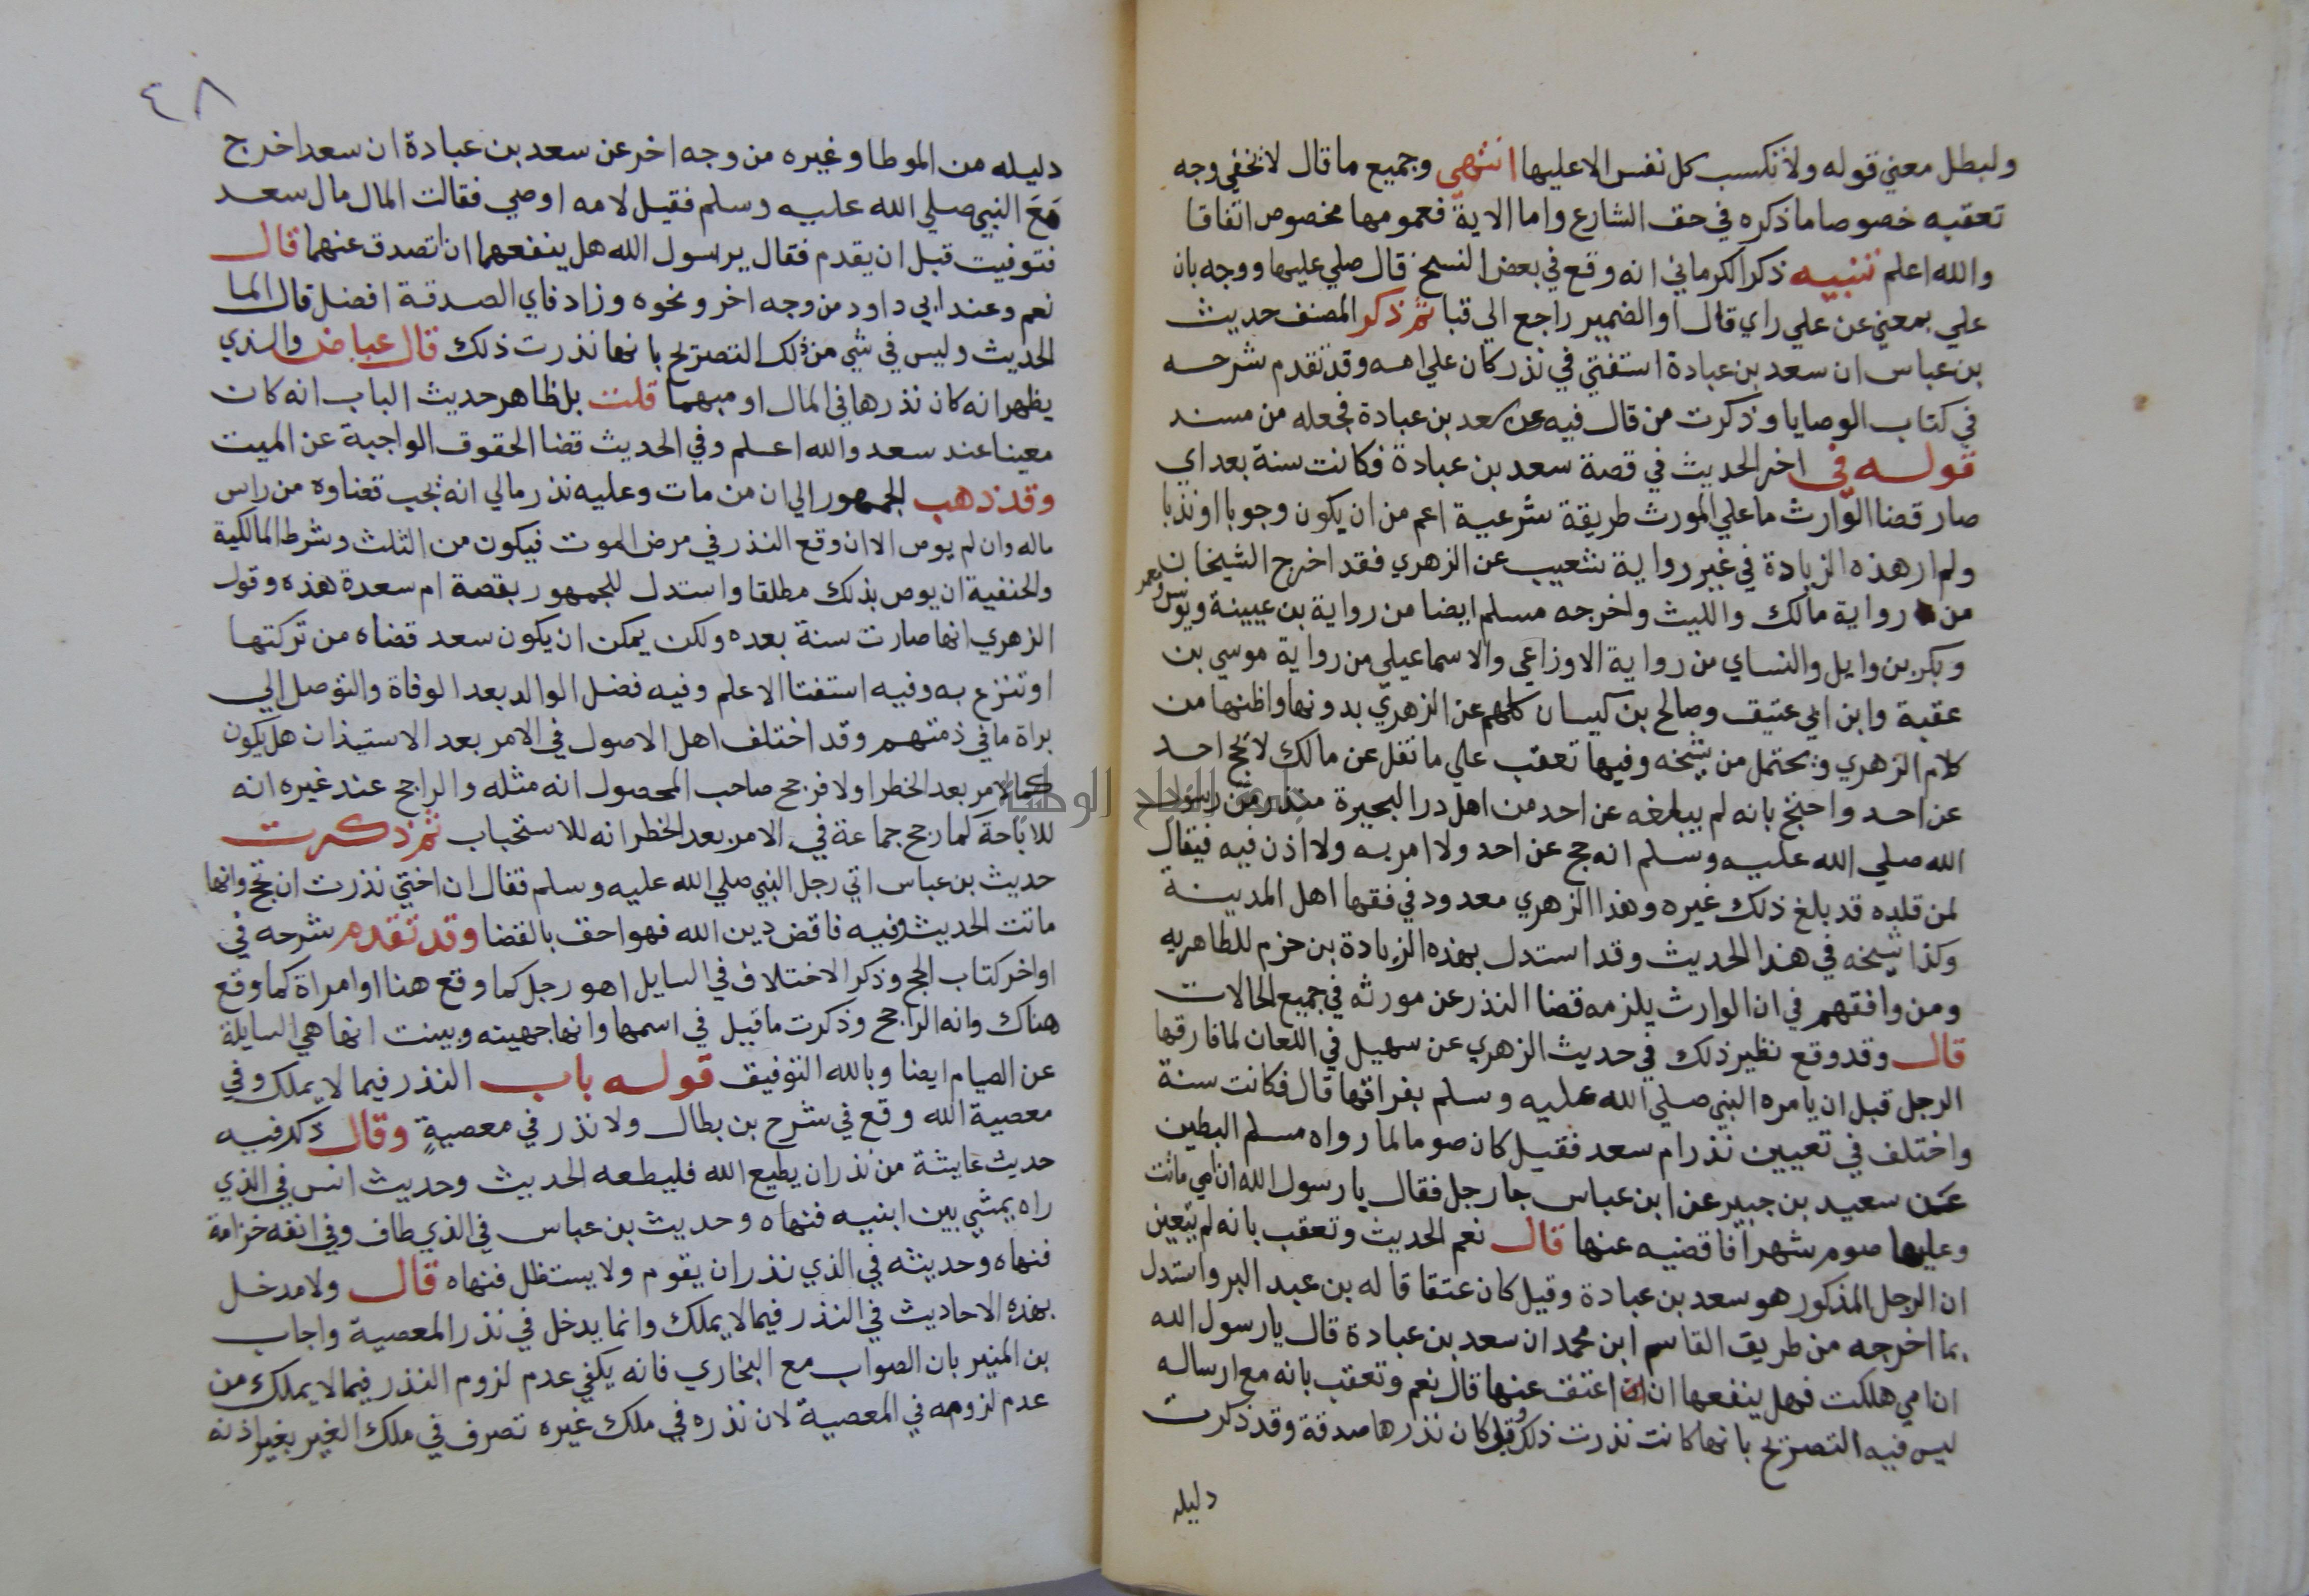 ولبطل معني قوله ولا تكسب كل نفس الا عليها انتهي وجميع ما قال لا يخفي وجه
تعقبه خصوصا ما ذكره في حق الشارع واما الاية فعمومها مخصوص اتفاقا
والله اعلم تنبيه ذكر الكرماني انه وقع في بعض النسخ قال صلي عليها ووجه بان
علي بمعني عن علي راي قال او الضمير راجع الي قبا ثم ذكر المصنف حديث
بن عباس ان سعد بن عبادة استفتي في نذر كان علي امه وقد تقدم شرحه
في كتاب الوصايا وذكرت من قال فيه عن سعد بن عبادة فجعله من مسند
قوله في اخر الحديث في قصة سعد بن عبادة فكانت سنة بعد اي
صار قضا الوارث ما علي المورث طريقة شرعية اعم من ان يكون وجوبا او ندبا
ولم ار هذه الزيادة في غير رواية شعيب عن الزهري فقد اخرج الشيخان
من رواية مالك والليث واخرجه مسلم ايضا من رواية بن عيينة ويونس ومعمر
وبكر بن وايل والنساي من رواية الاوزاعي والاسماعيلي من رواية موسي بن
عقبة وابن ابي عتيق وصالح بن كيسان كلهم عن الزهري بدونها واظنها من
كلام الزهري ويحتمل من شيخه وفيها تعقب علي ما نقل عن مالك لا يحج احد
عن احد واحتج بانه لم يبلغه عن احد من اهل دار الهجرة منذ زمن رسول
الله صلي الله عليه وسلم انه حج عن احد ولا امر به ولا اذن فيه فيقال
لمن قلده قد بلغ ذلك غيره وهذا الزهري معدود في فقها اهل المدينة
وكذا شيخه في هذا الحديث وقد استدل بهذه الزيادة بن حزم للظاهريه
ومن وافقهم في ان الوارث يلزمه قضا النذر عن مورثه في جميع الحالات
قال وقد وقع نظير ذلك في حديث الزهري عن سهيل في اللعان لما فارقها
الرجل قبل ان يامره النبي صلي الله عليه وسلم بفراقها قال فكانت سنة
واختلف في تعيين نذر ام سعد فقيل كان صوما لما رواه مسلم البطين
عن سعيد بن جبير عن ابن عباس جا رجل فقال يا رسول الله ان امي ماتت
وعليها صوم شهر افاقضيه عنها قال نعم الحديث وتعقب بانه لم يتعين
ان الرجل المذكور هو سعد بن عبادة وقيل كان عتقا قاله بن عبد البر واستدل
بما اخرجه من طريق القاسم ابن محمد ان سعد بن عبادة قال يا رسول الله
ان امي هلكت فهل ينفعها ان اعتق عنها قال نعم وتعقب بانه مع ارساله
ليس فيه التصريح بانها كانت نذرت ذلك وقيل كان نذرها صدقة وقد ذكرت
دليله
٤٨
دليله من الموطا وغيره من وجه اخر عن سعد بن عبادة ان سعدا خرج
مع النبي صلي الله عليه وسلم فقيل لامه اوصي فقالت المال مال سعد
فتوفيت قبل ان يقدم فقال يرسول الله هل ينفعها ان اتصدق عنها قال
نعم وعند ابي داود من وجه اخر ونحوه وزاد فاي الصدقة افضل قال الما
الحديث وليس في شي من ذلك التصريح بانها نذرت ذلك قال عياض والذي
يظهر انه كان نذرها في المال او مبهما قلت بل ظاهر حديث الباب انه كان
معينا عند سعد والله اعلم وفي الحديث قضا الحقوق الواجبة عن الميت
وقد ذهب الجمهور الي ان من مات وعليه نذر مالي انه يجب قضاوه من راس
ماله وان لم يوص الا ان وقع النذر في مرض الموت فيكون من الثلث وشرط المالكية
والحنفية ان يوص بذلك مطلقا واستدل للجمهور بقصة ام سعدة هذه وقول
الزهري انها صارت سنة بعده ولكن يمكن ان يكون سعد قضاه من تركتها
او تنزع به وفيه استفتا الاعلم وفيه فضل الوالد بعد الوفاة والتوصل الي
براة ما في ذمتهم وقد اختلف اهل الاصول في الامر بعد الاستيذان هل يكون
كالامر بعد الخطر اولا فرجح صاحب المحصول انه مثله والراجح عند غيره انه
للاباحة كما رجح جماعة في الامر بعد الخطر انه للاستحباب ثم ذكرت
حديث بن عباس اتي رجل النبي صلي الله عليه وسلم فقال ان اختي نذرت ان تحج وانها
ماتت الحديث وفيه فاقض دين الله فهو احق بالقضا وقد تقدم شرحه في
اواخر كتاب الحج وذكر الاختلاف في السايل اهو رجل كما وقع هنا او امراة كما وقع
هناك وانه الراجح وذكرت ما قيل في اسمها وانها جهينه وبينت انها هي السايلة
عن الصيام ايضا وبالله التوفيق قوله باب النذر فيما لا يملك وفي
معصية الله وقع في شرح بن بطال ولا نذر في معصية وقال ذكر فيه
حديث عايشة من نذر ان يطيع الله فليطعه الحديث وحديث انس في الذي
راه يمشي بين ابنيه فنهاه وحديث بن عباس في الذي طاف وفي انفه خزامة
فنهاه وحديثه في الذي نذر ان يقوم ولا يستظل فنهاه قال ولا مدخل
بهذه الاحاديث في النذر فيما لا يملك وانما يدخل في نذر المعصية واجاب
بن المنير بان الصواب مع البخاري فانه يكفي عدم لزوم النذر فيما لا يملك من
عدم لزومه في المعصية لان نذره في ملك غيره تصرف في ملك الغير بغير اذنه